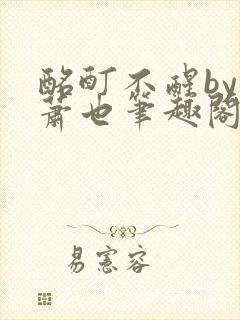 酩酊不醒by
萧也笔趣阁
易宪容